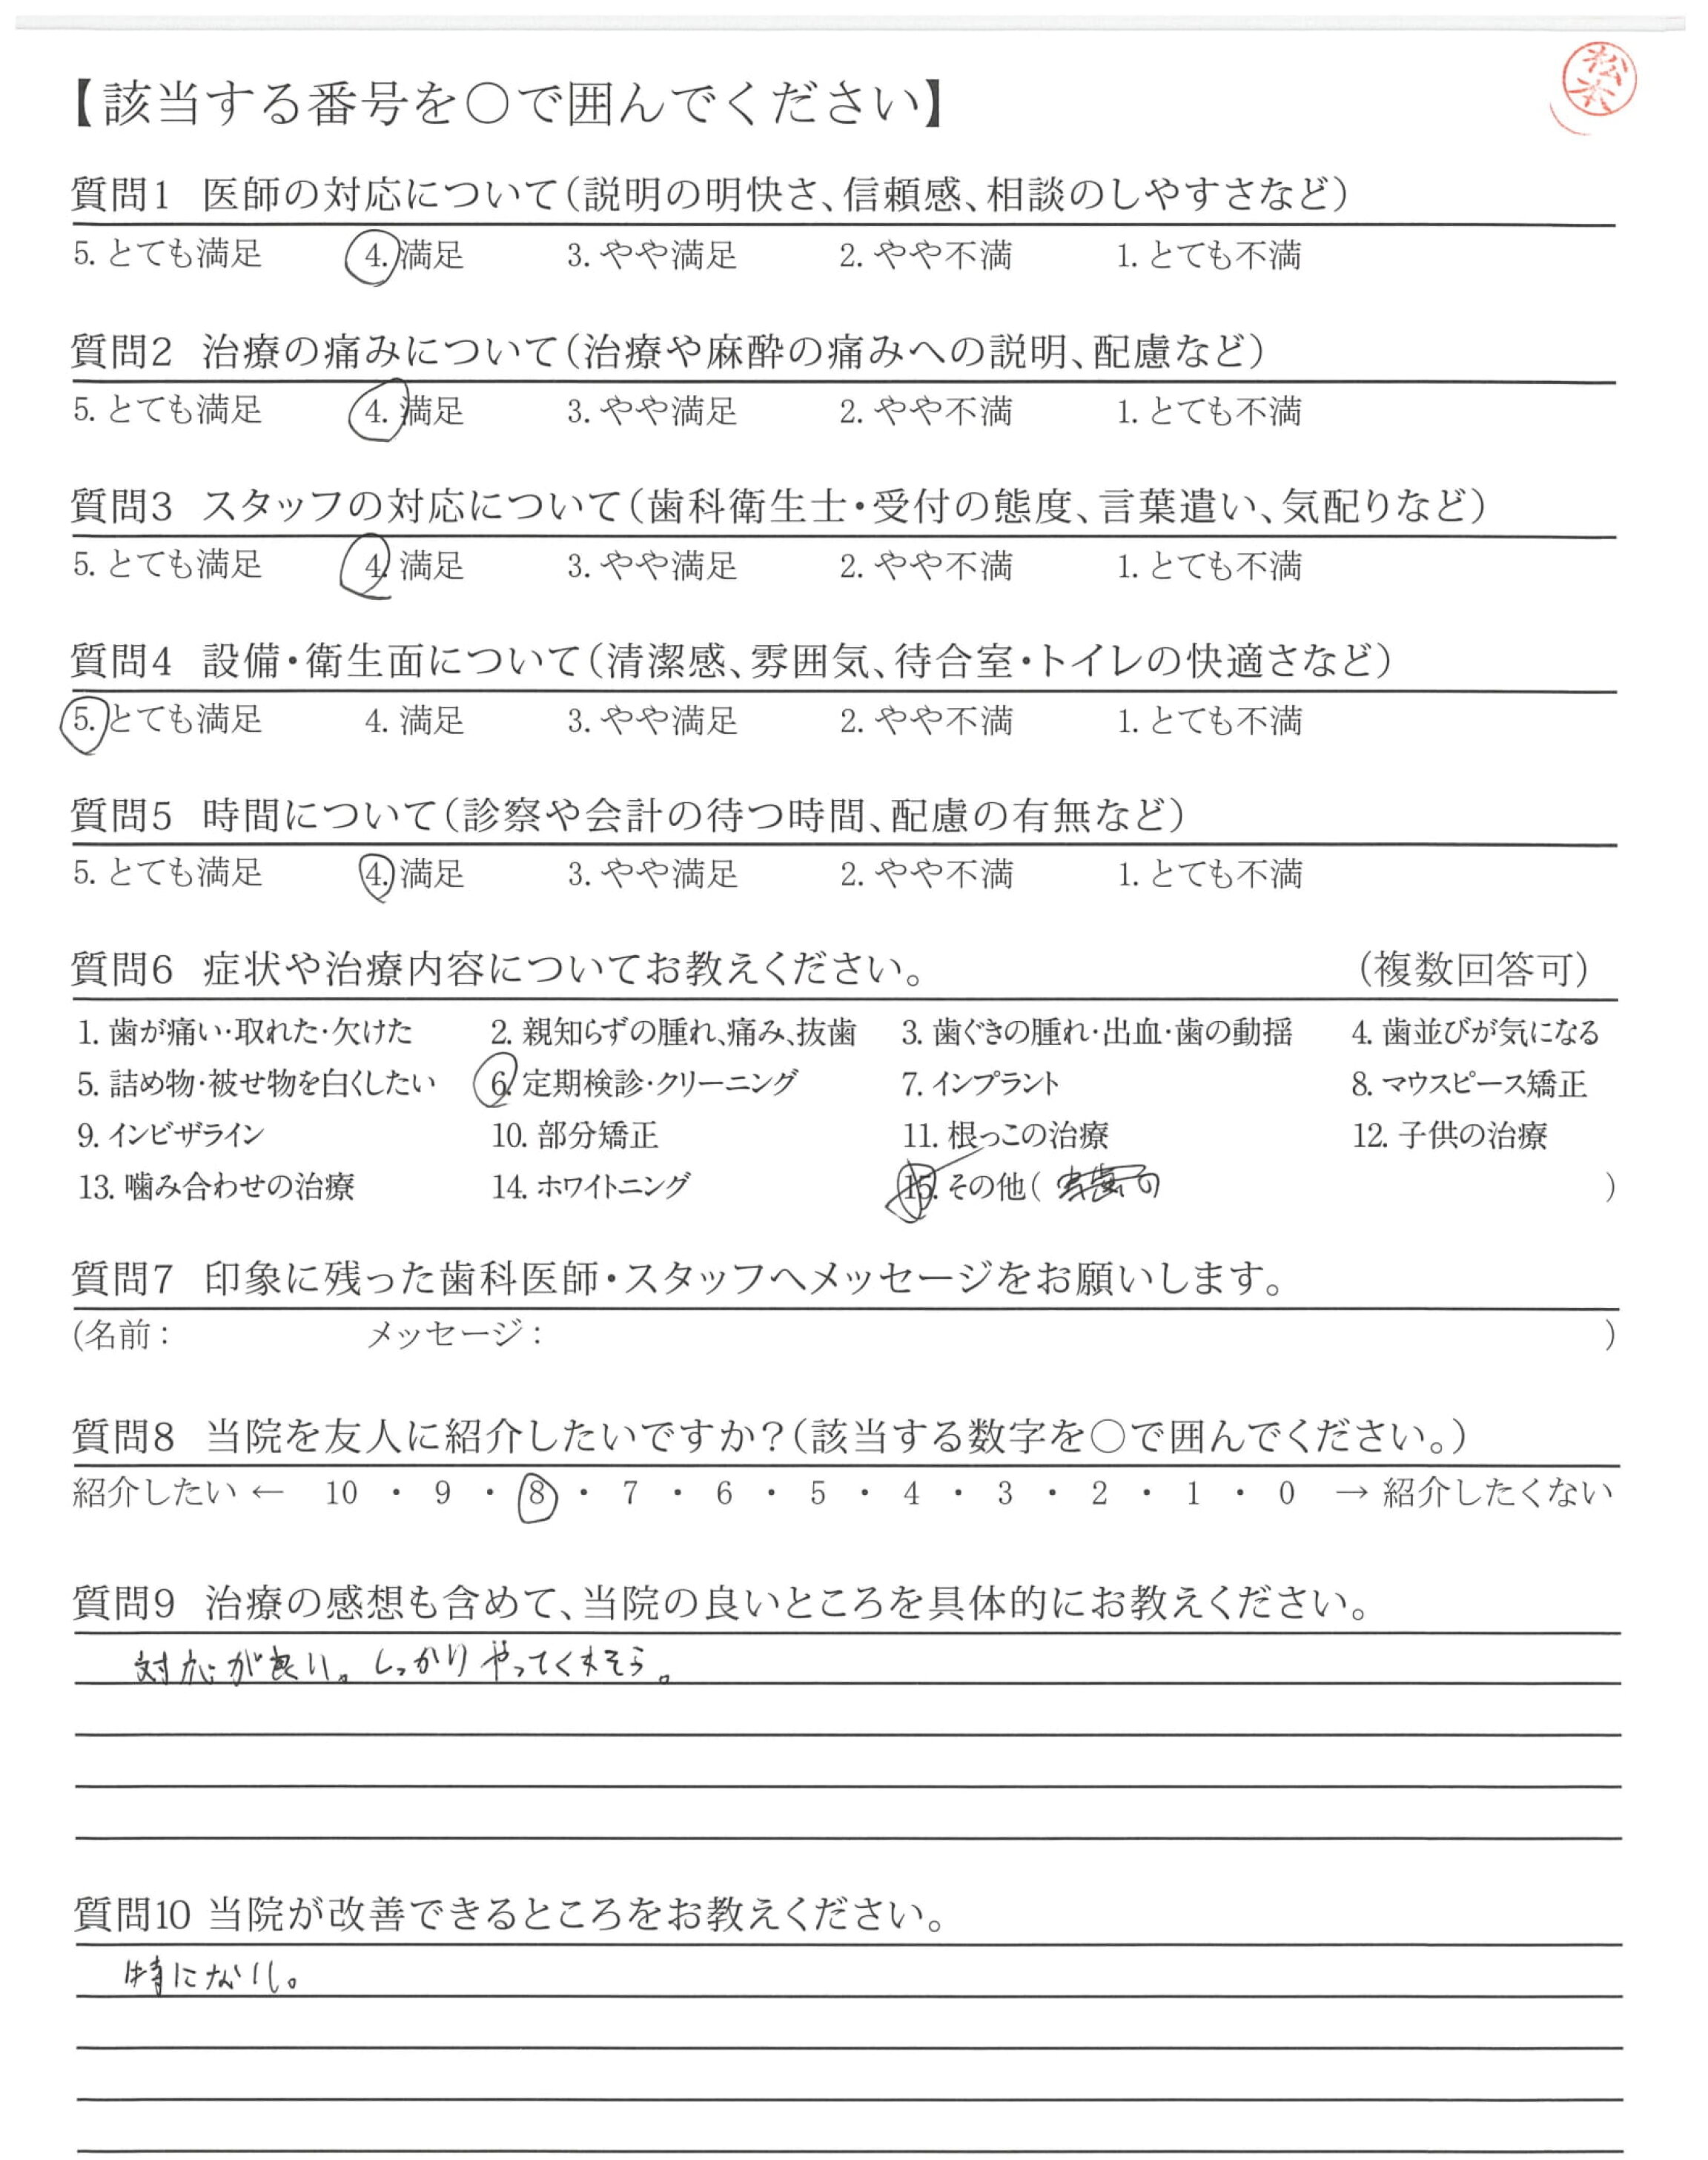 【該当する番号を○で囲んでください】
質問1 医師の対応について(説明の明快さ、信頼感、相談のしやすさなど)
5. とても満足 4. 満足 3. やや満足 2. やや不満 1. とても不満
質問2 治療の痛みについて(治療や麻酔の痛みへの説明、配慮など)
5. とても満足 4. 満足 3. やや満足 2. やや不満 1. とても不満
質問3 スタッフの対応について(歯科衛生士・受付の態度、言葉遣い、気配りなど)
5. とても満足 4. 満足 3. やや満足 2. やや不満 1. とても不満
質問4 設備・衛生面について(清潔感、雰囲気、待合室・トイレの快適さなど)
5. とても満足 4. 満足 3. やや満足 2. やや不満 1. とても不満
質問5 時間について(診察や会計の待つ時間、配慮の有無など)
5. とても満足 4. 満足 3. やや満足 2. やや不満 1. とても不満
質問6 症状や治療内容についてお教えください。 (複数回答可)
1. 歯が痛い・取れた・欠けた 2. 親知らずの腫れ、痛み、抜歯 3. 歯ぐきの腫れ・出血・歯の動揺 4. 歯並びが気になる
5. 詰め物・被せ物を白くしたい 6. 定期検診・クリーニング 7. インプラント 8. マウスピース矯正
9. インビザライン 10. 部分矯正 11. 根っこの治療 12. 子供の治療
13. 噛み合わせの治療 14. ホワイトニング 15. その他( )
質問7 印象に残った歯科医師・スタッフへメッセージをお願いします。
(名前: メッセージ: )
質問8 当院を友人に紹介したいですか?(該当する数字を○で囲んでください。)
紹介したい ← 10 ・ 9 ・ 8 ・ 7 ・ 6 ・ 5 ・ 4 ・ 3 ・ 2 ・ 1 ・ 0 → 紹介したくない
質問9 治療の感想も含めて、当院の良いところを具体的にお教えください。
対応が良い。しっかりやってくれそう。
質問10 当院が改善できるところをお教えください。
特になし。